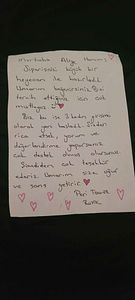 Merhaba Alıye Hanım;
Siparişinizi büyük bir
heyecan ile hazırladık.
Umarım beğenirsiniz. Bizi
tercih ettiğiniz için çok
mutluyuz
Biz bu işe 3 kadın girişimci
olarak yeni başladık. Sizden
rica etsek, yorum ve
değerlendirme yaparsanız
çok destek olmuş olursunuz.
Şimdiden çok teşekkür
ederiz. Umarım size uğur
ve şans getirir.
Peri